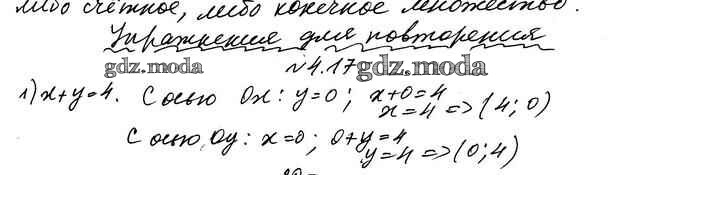 либо счётное, либо конечное множество.
Упражнения для повторения
gdz.moda
№4.17 gdz.moda
1) x+y=4. С осью Ox: y=0; x+0=4
x=4 => (4; 0)
С осью Oy: x=0; 0+y=4
y=4 => (0; 4)